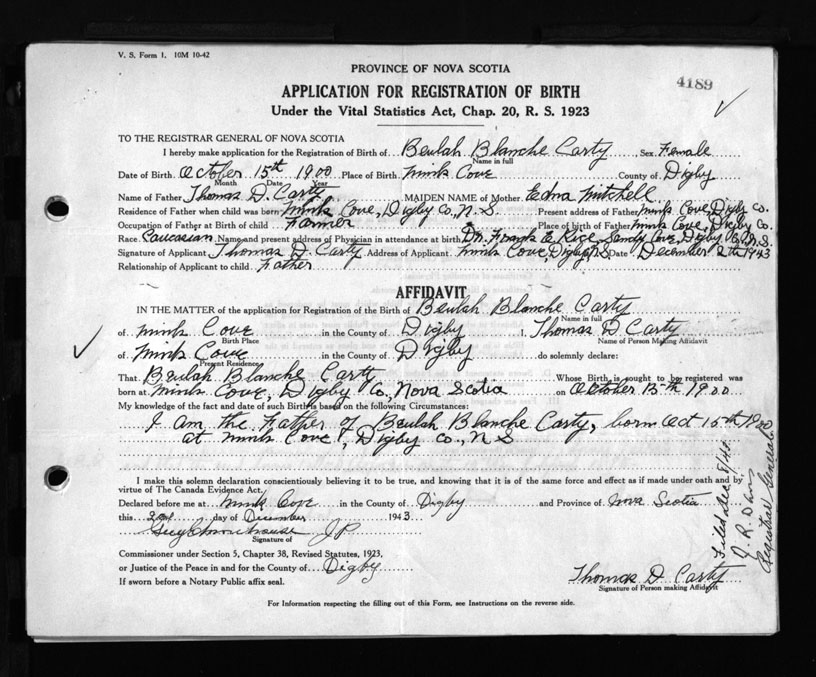 V. S. Form 1. 10M 10-42
PROVINCE OF NOVA SCOTIA
4189
APPLICATION FOR REGISTRATION OF BIRTH
Under the Vital Statistics Act, Chap. 20, R. S. 1923
TO THE REGISTRAR GENERAL OF NOVA SCOTIA
I hereby make application for the Registration of Birth of Beulah Blanche Carty, Sex Female
Name in full
Date of Birth October 15th 1900 Place of Birth Mink Cove County of Digby
Month Date Year
Name of Father Thomas D. Carty MAIDEN NAME of Mother Edna Mitchell
Residence of Father when child was born Mink Cove, Digby Co, N.S Present address of Father Mink Cove, Digby Co.
Occupation of Father at Birth of child Farmer Place of birth of Father Mink Cove, Digby Co.
Race Caucasian Name and present address of Physician in attendance at birth Dr. Frank E Rice Sandy Cove, Digby Co, N.S.
Signature of Applicant Thomas D Carty Address of Applicant Mink Cove, Digby, N.S Date December 2th 1943
Relationship of Applicant to child Father
AFFIDAVIT
IN THE MATTER of the application for Registration of the Birth of Beulah Blanche Carty
Name in full
of Mink Cove in the County of Digby I, Thomas D Carty
Birth Place Name of Person Making Affidavit
of Mink Cove in the County of Digby do solemnly declare:
Present Residence
That Beulah Blanche Carty Whose Birth is sought to be registered was
born at Mink Cove, Digby Co, Nova Scotia on October 15th 1900
My knowledge of the fact and date of such Birth is based on the following Circumstances:
I am the Father of Beulah Blanche Carty, born Oct 15th 1900
at Mink Cove, Digby Co, N S
I make this solemn declaration conscientiously believing it to be true, and knowing that it is of the same force and effect as if made under oath and by
virtue of The Canada Evidence Act.
Declared before me at Mink Cove in the County of Digby and Province of Nova Scotia
this 2nd day of December 1943
J P
Signature of
Commissioner under Section 5, Chapter 38, Revised Statutes, 1923,
or Justice of the Peace in and for the County of Digby
If sworn before a Notary Public affix seal.
Thomas D Carty
Signature of Person making Affidavit
For Information respecting the filling out of this Form, see Instructions on the reverse side.
Filed Dec.
Registrar General